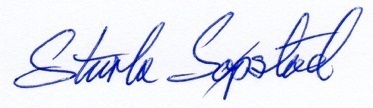 Sturla Sopstad